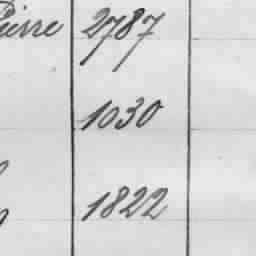 Pierre 2787
1030
1822